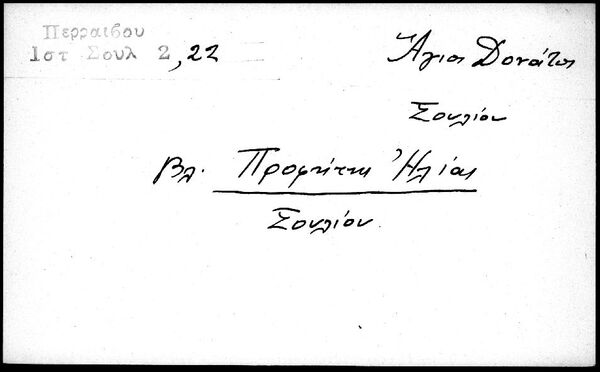 Περραιβου
Ιστ Σουλ 2,22
Ἅγιος Δονάτος
Σουλίου
Βλ. Προφήτης Ἠλίας
Σουλίου.